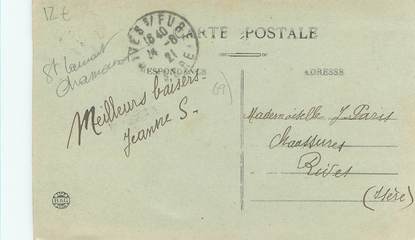 12 €
St Laurent
CARTE POSTALE
RIVES S/ FURE
18 40
21
CORRESPONDANCE
ADRESSE
Meilleurs baisers.
Jeanne S.
(69)
Mademoiselle J. Paris
Chaussures
Rives
(Isère)